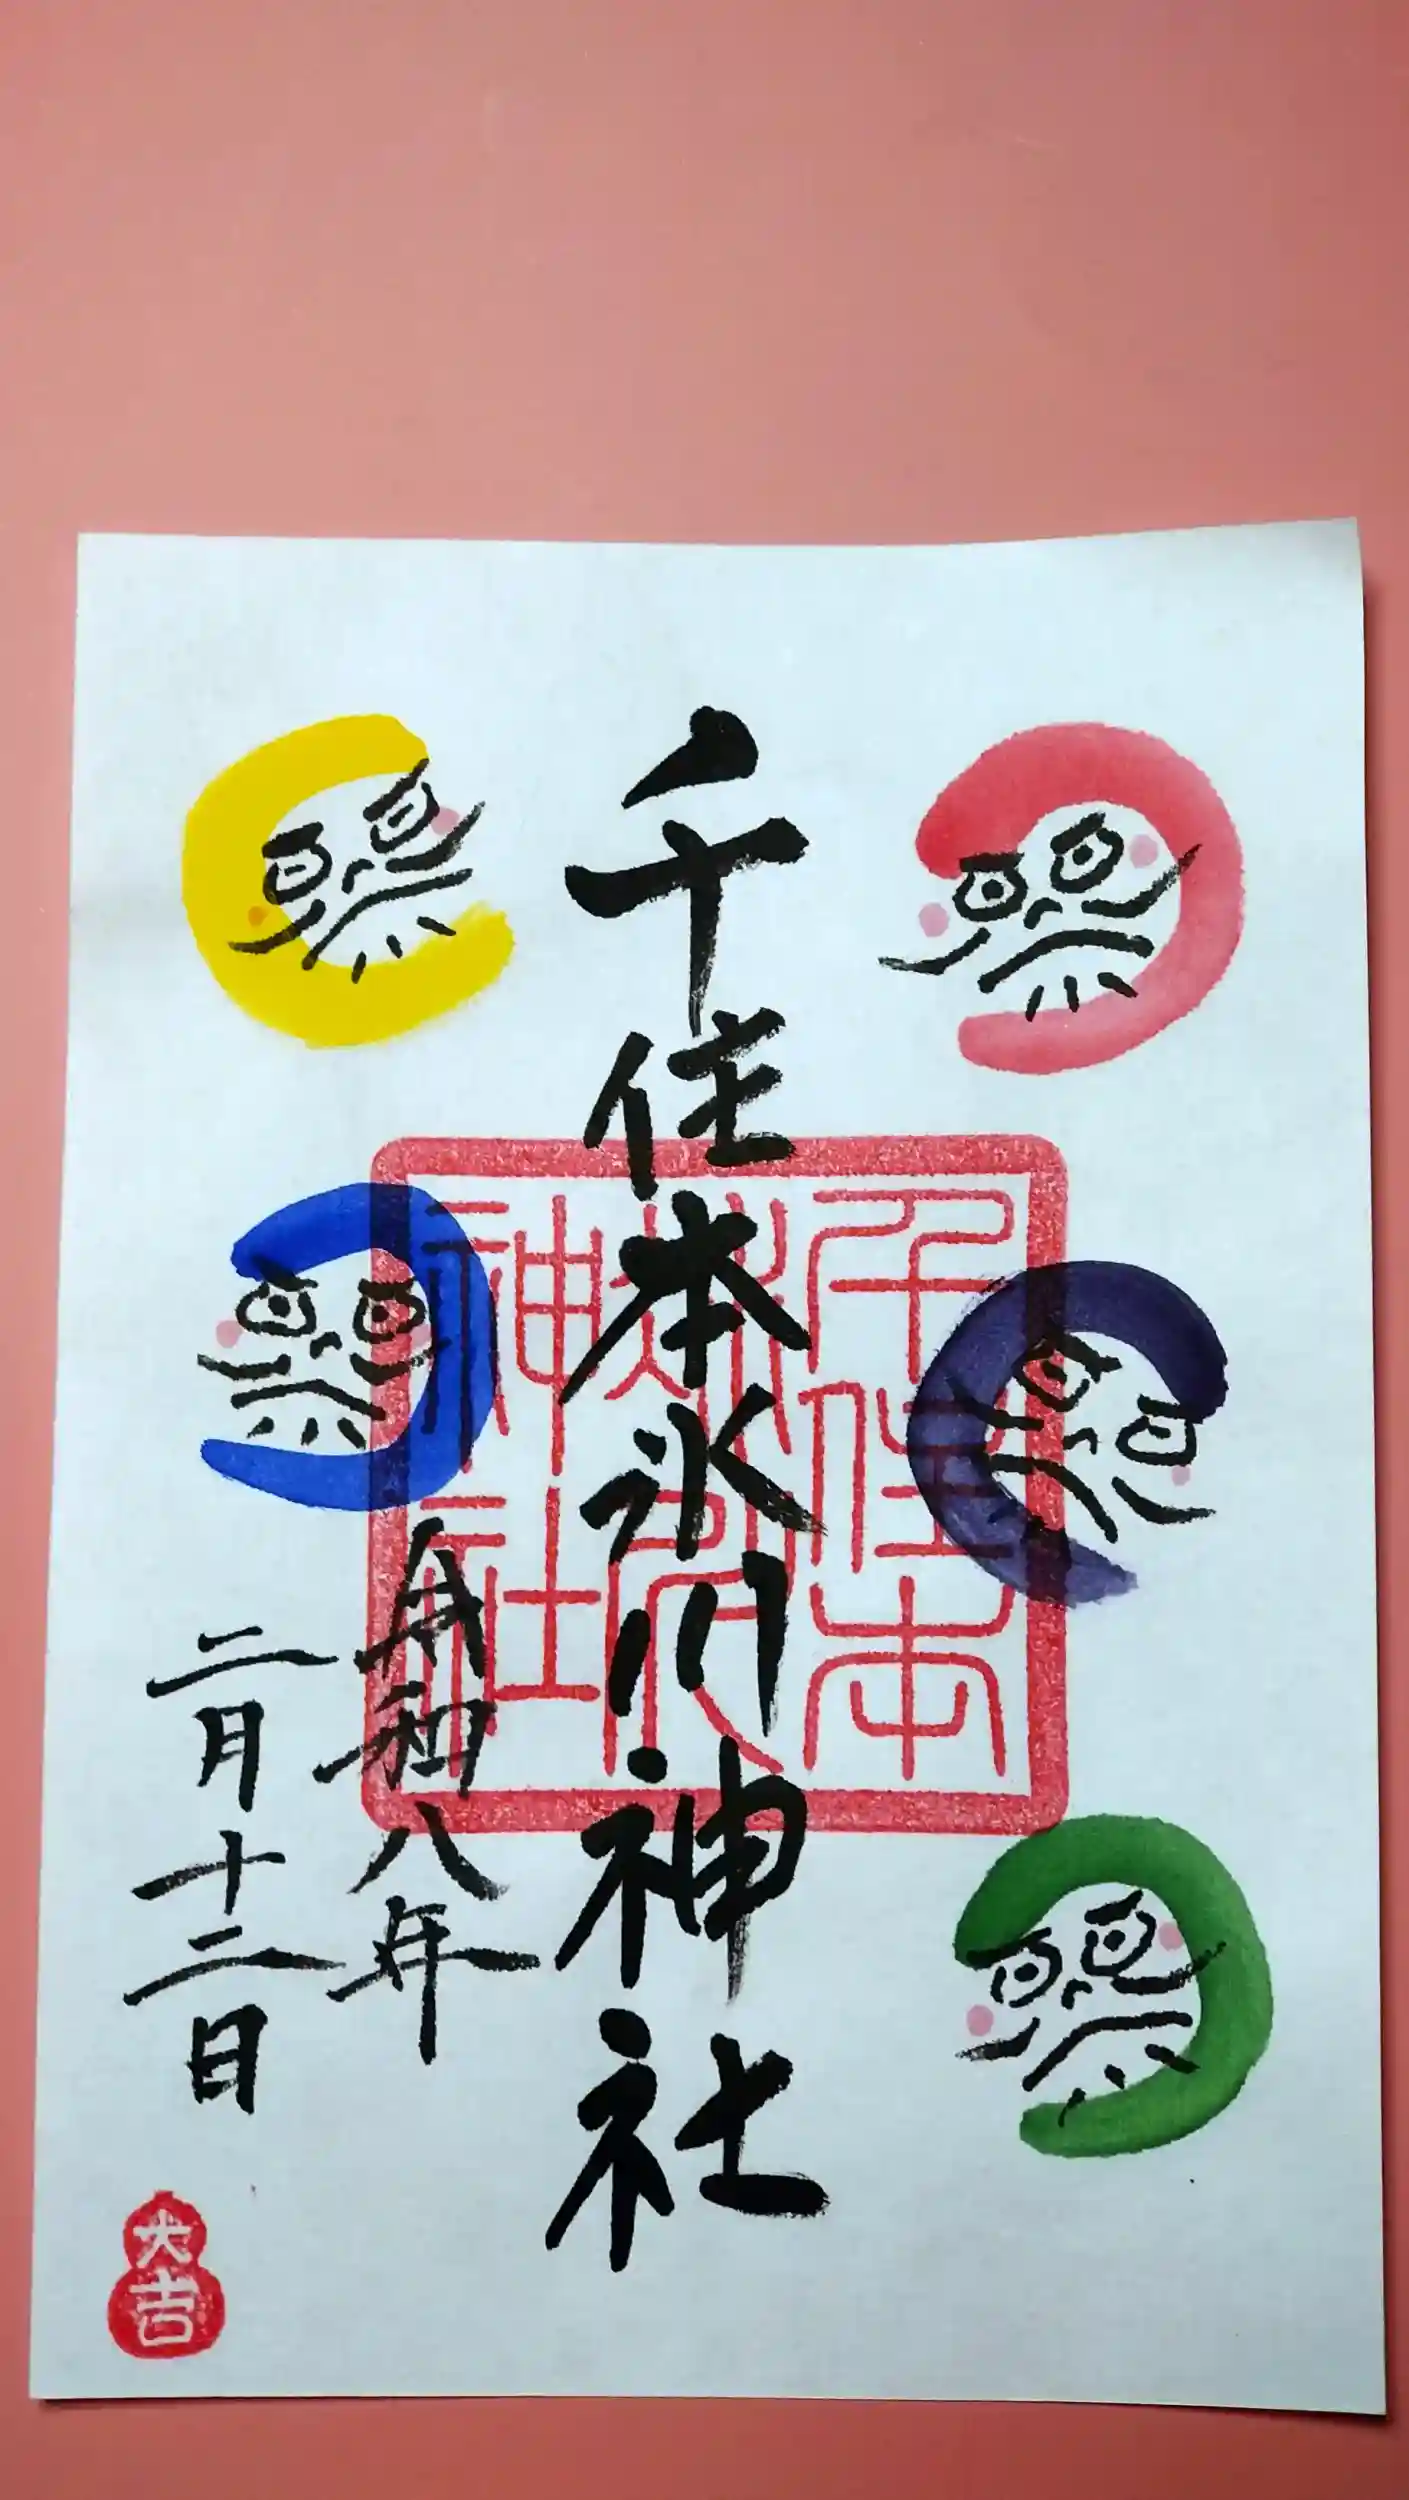 千住本氷川神社
千住本
氷川
神社
令和八年
二月十二日
大吉